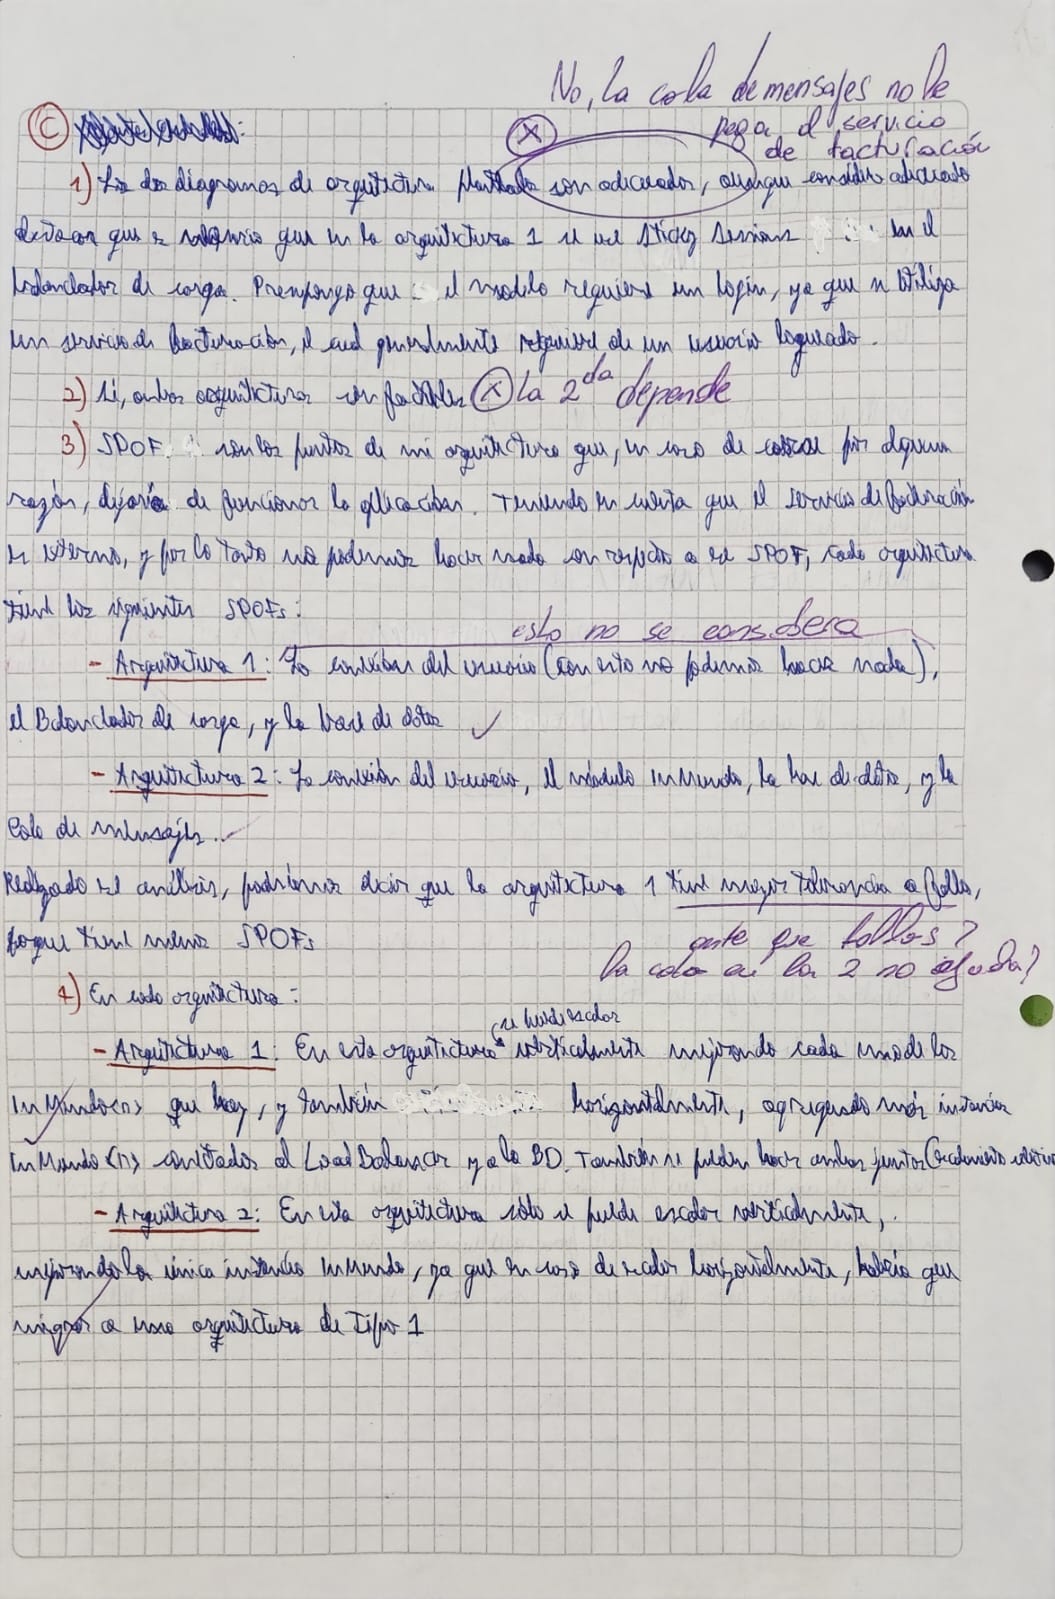 No, la cola de mensajes no le
pega al servicio
de facturación
C
X
1) Los dos diagramas de arquitectura planteados son adecuados, aunque considero adecuado
que en la arquitectura 1 se use Sticky Sessions en el
balanceador de carga. Presupongo que el modelo requiere un login, ya que se utiliza
un servicio de facturación, el cual generalmente requiere de un usuario logueado.
2) Sí, ambas arquitecturas son factibles X la 2da depende
3) SPOF: son los puntos de mi arquitectura que, en caso de por alguna
razón, dejaría de funcionar la aplicación. Teniendo en cuenta que el servicio de facturación
es externo, y por lo tanto no podemos hacer nada con respecto a ese SPOF, cada arquitectura
tiene los siguientes SPOFs:
esto no se considera
- Arquitectura 1: La conexión del usuario (con esto no podemos hacer nada),
el Balanceador de carga, y la base de datos
- Arquitectura 2: La conexión del usuario, el módulo InMundo, la base de datos, y la
Cola de mensajes.
Realizado el análisis, podríamos decir que la arquitectura 1 tiene mejor tolerancia a fallos,
porque tiene menos SPOFs
ante que fallos?
la cola en la 2 no ayuda?
4) En cada arquitectura:
se puede escalar
- Arquitectura 1: En esta arquitectura verticalmente mejorando cada uno de los
InMundo<n> que hay, y también horizontalmente, agregando más instancias
InMundo<n> conectadas al Load Balancer y a la BD. También se pueden hacer ambas juntas
- Arquitectura 2: En esta arquitectura sólo se puede escalar verticalmente,
mejorando la única instancia InMundo, ya que en caso de escalar horizontalmente, habría que
migrar a una arquitectura de Tipo 1